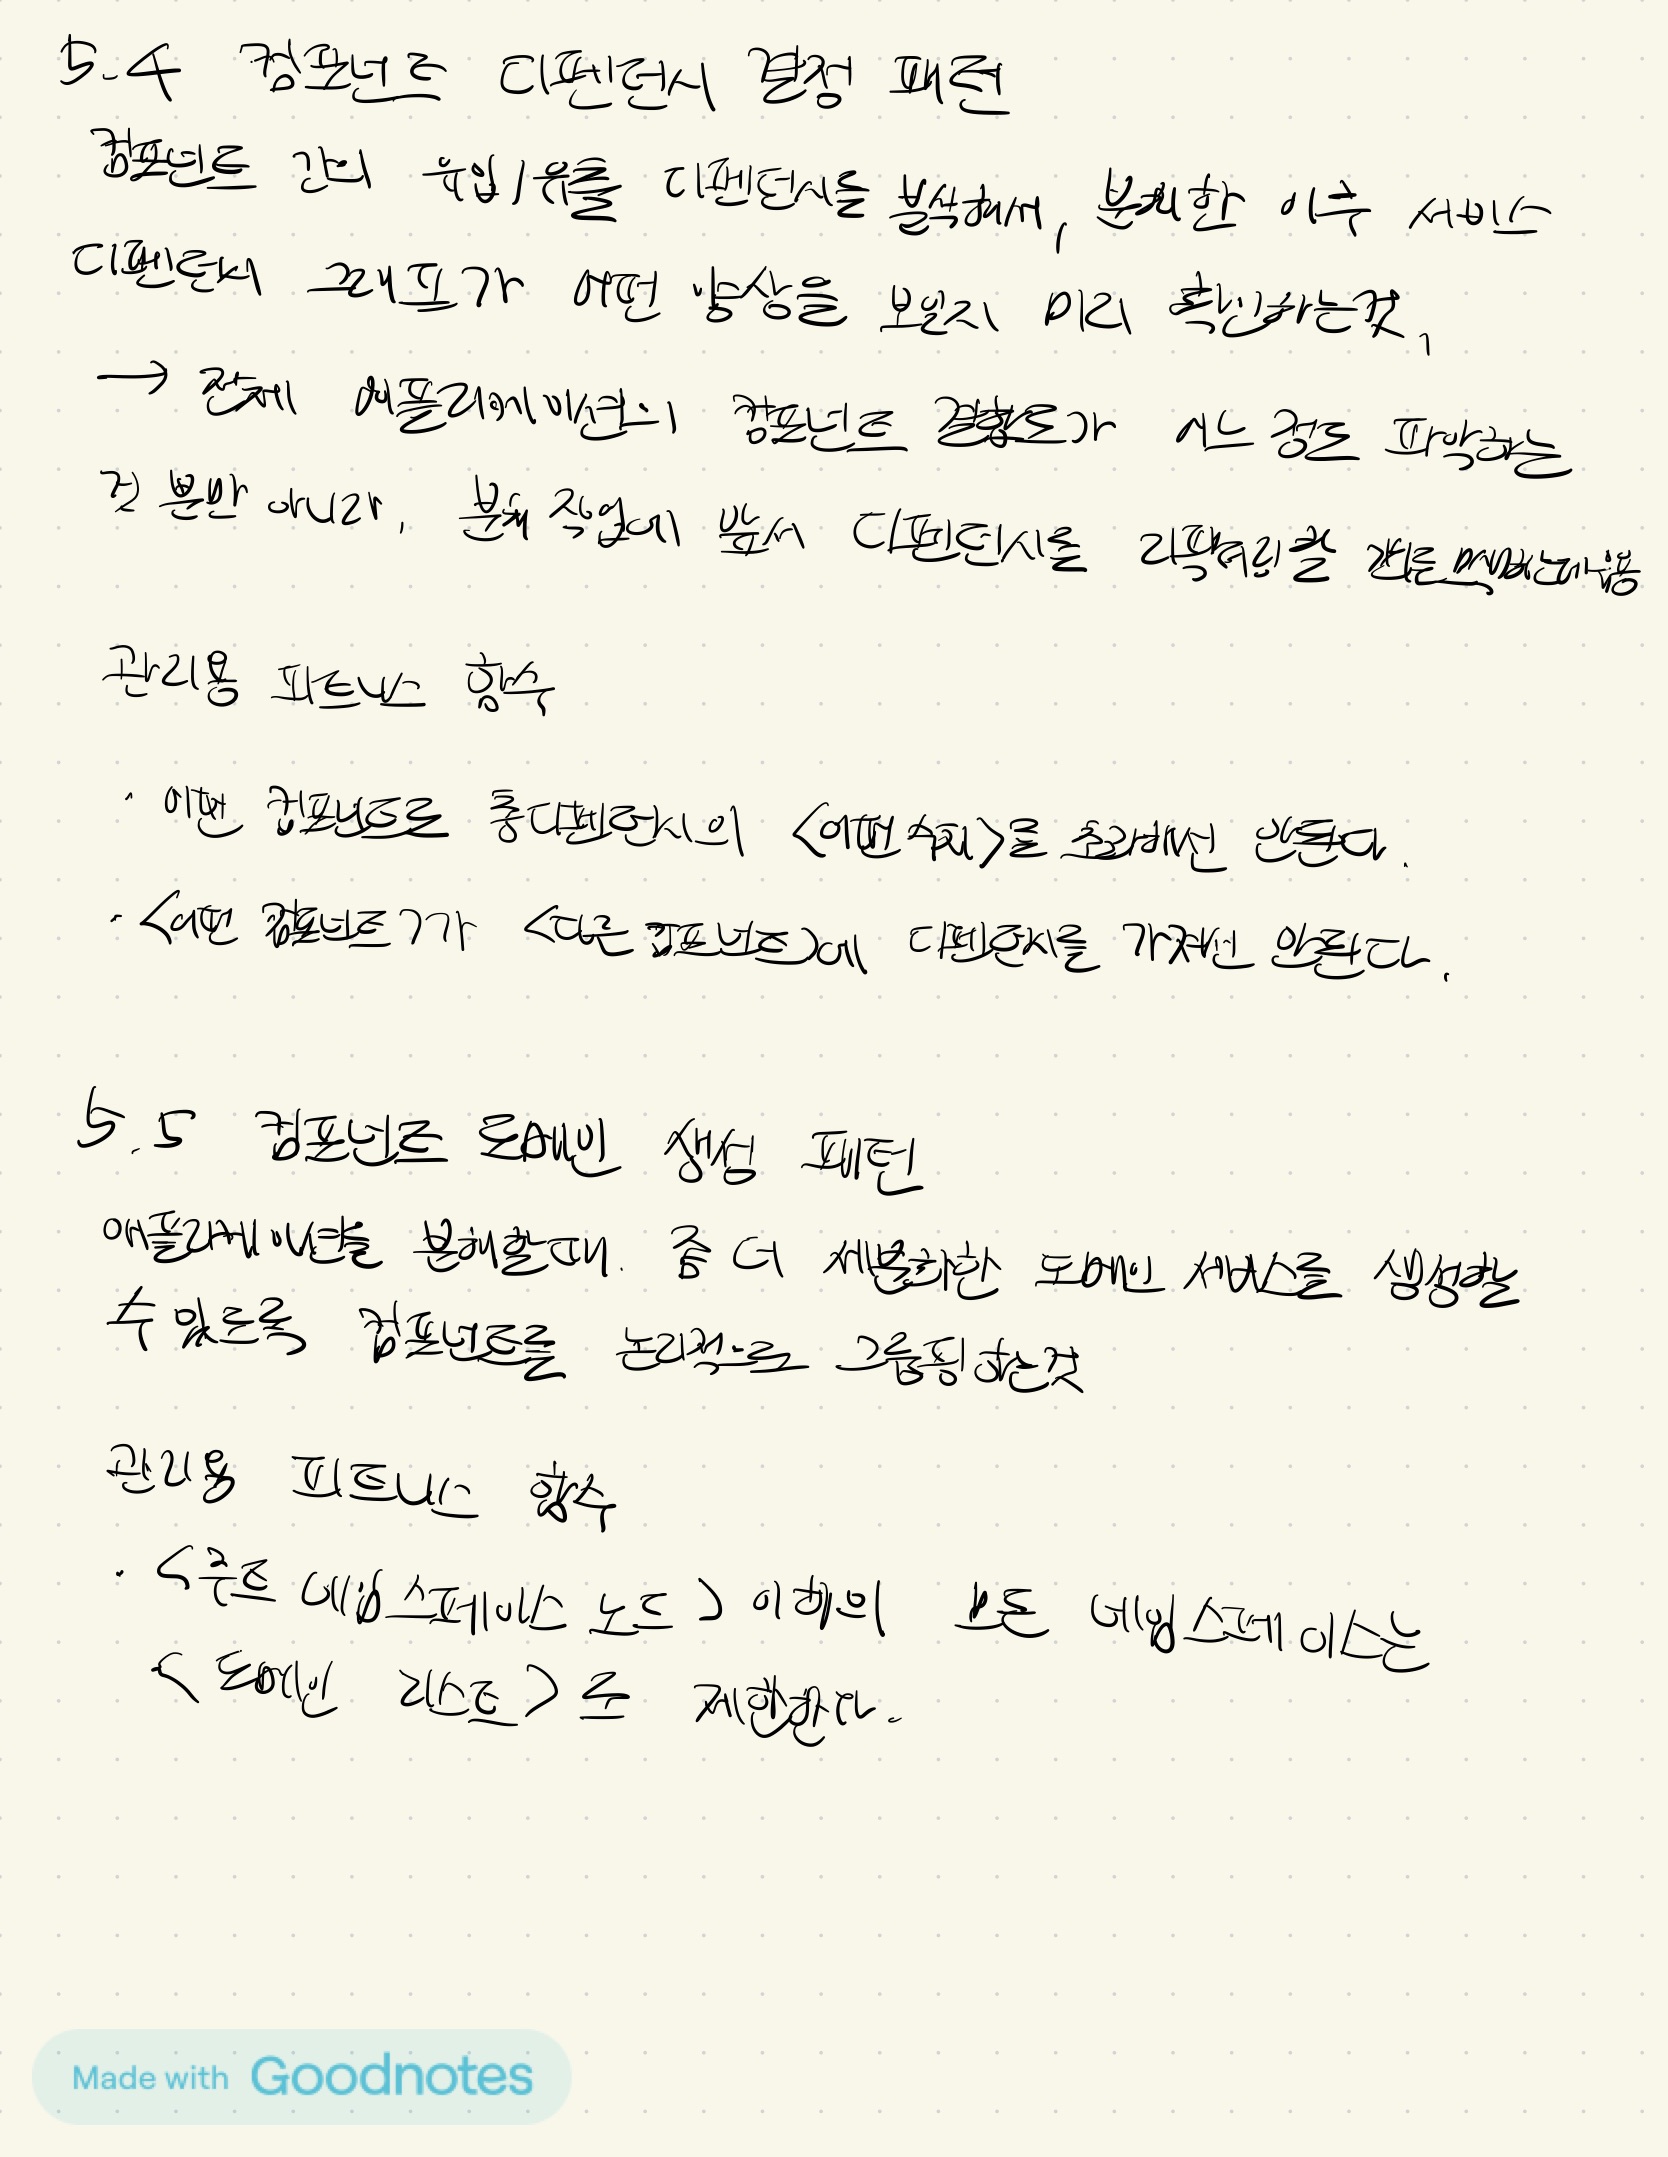 5.4 컴포넌트 디펜던시 결정 패턴
컴포넌트 간의 유입/유출 디펜던시를 분석해서, 분해한 이후 서비스
디펜던시 그래프가 어떤 양상을 보일지 미리 확인하는것,
→ 전체 애플리케이션의 컴포넌트 결합도가 어느 정도 파악하는
것 뿐만 아니라, 분해 작업에 앞서 디펜던시를 리팩터링할
관리용 피트니스 함수
· 어떤 컴포넌트도 총디펜던시의 <어떤 수치>를 초과해선 안된다.
· <어떤 컴포넌트>가 <다른 컴포넌트>에 디펜던시를 가져선 안된다.
5.5 컴포넌트 도메인 생성 패턴
애플리케이션을 분해할때. 좀 더 세분화한 도메인 서비스를 생성할
수 있도록 컴포넌트를 논리적으로 그룹핑 하는것
관리용 피트니스 함수
· <루트 네임스페이스 노드> 이하의 모든 네임스페이스는
<도메인 리스트>로 제한한다.
Made with Goodnotes